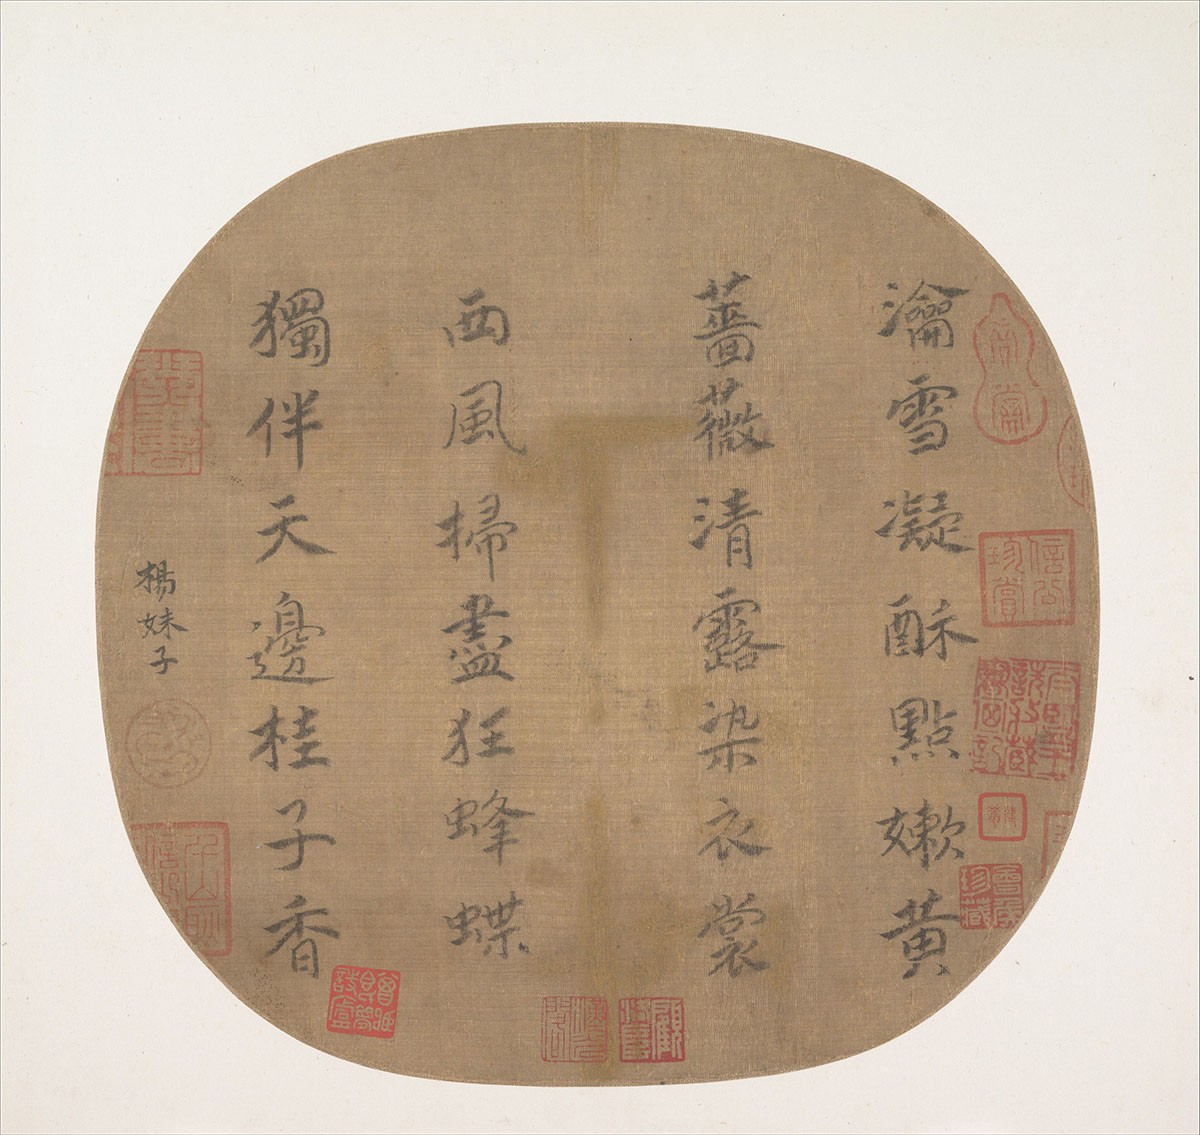 瀹雪凝酥點嫰黃
薔薇清露染衣裳
西風掃盡狂蜂蝶
獨伴天邊桂子香
楊妹子
信公珍賞